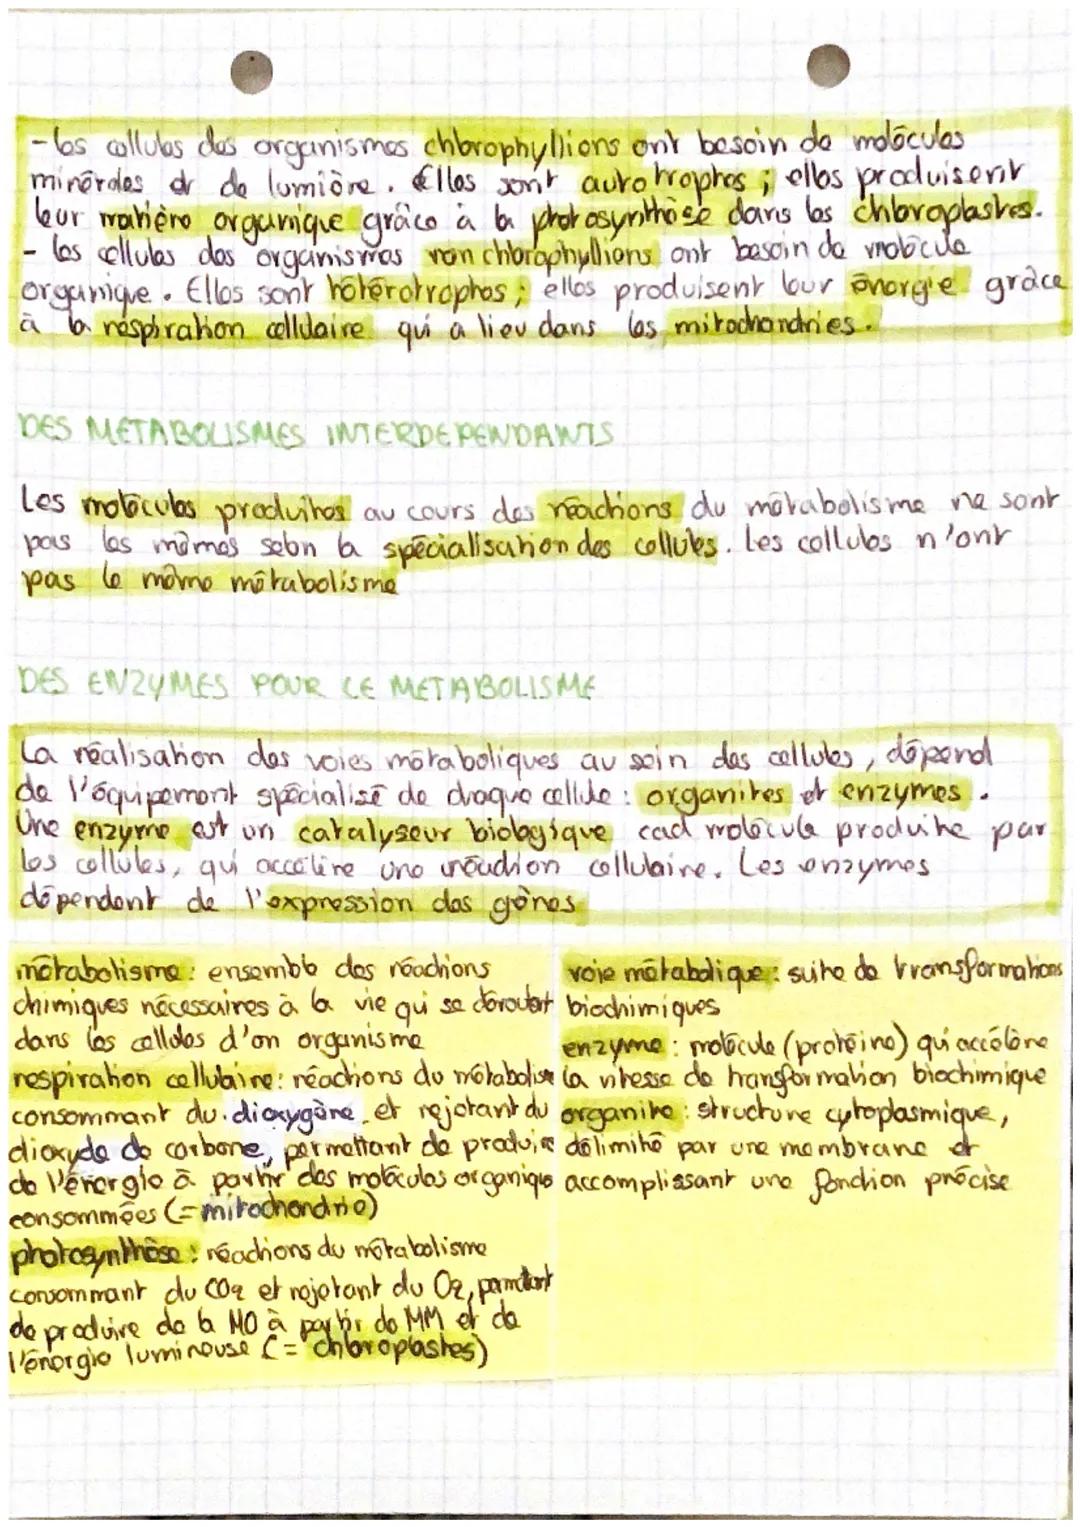 - les cellules des organismes chlorophylliens ont besoin de molécules
minérales et de lumière. Elles sont autotrophes ; elles produisent
leur matière organique grâce à la photosynthèse dans les chloroplastes.
- les cellules des organismes non chlorophylliens ont besoin de molécule
organique. Elles sont hétérotrophes ; elles produisent leur énergie grâce
à la respiration cellulaire qui a lieu dans les mitochondries.
DES METABOLISMES INTERDEPENDANTS
Les molécules produites au cours des réactions du métabolisme ne sont
pas les mêmes selon la spécialisation des cellules. Les cellules n'ont
pas le même métabolisme
DES ENZYMES POUR LE METABOLISME
La réalisation des voies métaboliques au sein des cellules, dépend
de l'équipement spécialisé de chaque cellule : organites et enzymes.
Une enzyme est un catalyseur biologique cad molécule produite par
les cellules, qui accélère une réaction cellulaire. Les enzymes
dépendent de l'expression des gènes
métabolisme : ensemble des réactions
chimiques nécessaires à la vie qui se déroulent
dans les cellules d'un organisme
respiration cellulaire : réactions du métabolisme
consommant du dioxygène et rejetant du
dioxyde de carbone, permettant de produire
de l'énergie à partir des molécules organiques
consommées (= mitochondrie)
photosynthèse : réactions du métabolisme
consommant du CO2 et rejetant du O2, permettant
de produire de la MO à partir de MM et de
l'énergie lumineuse (= chloroplastes)
voie métabolique : suite de transformations
biochimiques
enzyme : molécule (protéine) qui accélère
la vitesse de transformation biochimique
organite : structure cytoplasmique,
délimité par une membrane et
accomplissant une fonction précise